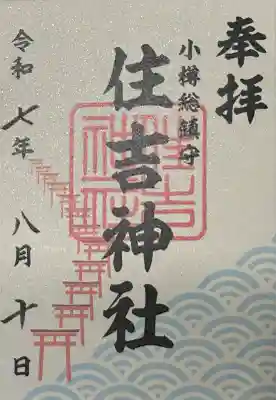 奉拝
小樽総鎮守
住吉神社
令和七年 八月十日